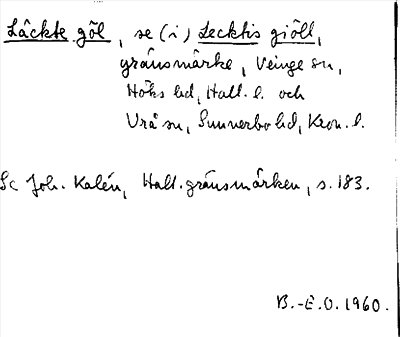 Läckte göl, se (i) Lecktis giöll,
gränsmärke, Veinge sn,
Höks hd, Hall. l. och
Vrå sn, Sunnerbo hd, Kron. l.
Sc Joh. Kalén, Hall. gränsmärken, s. 183.
B.-E.O. 1960.